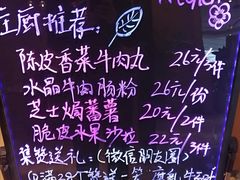 主厨推荐:
陈皮香菜牛肉丸 26元/3件
水晶牛肉肠粉 26元/份
芝士焗蕃薯 20元/2件
脆皮水果沙拉 22元/3件
集赞送礼:(微信朋友圈)